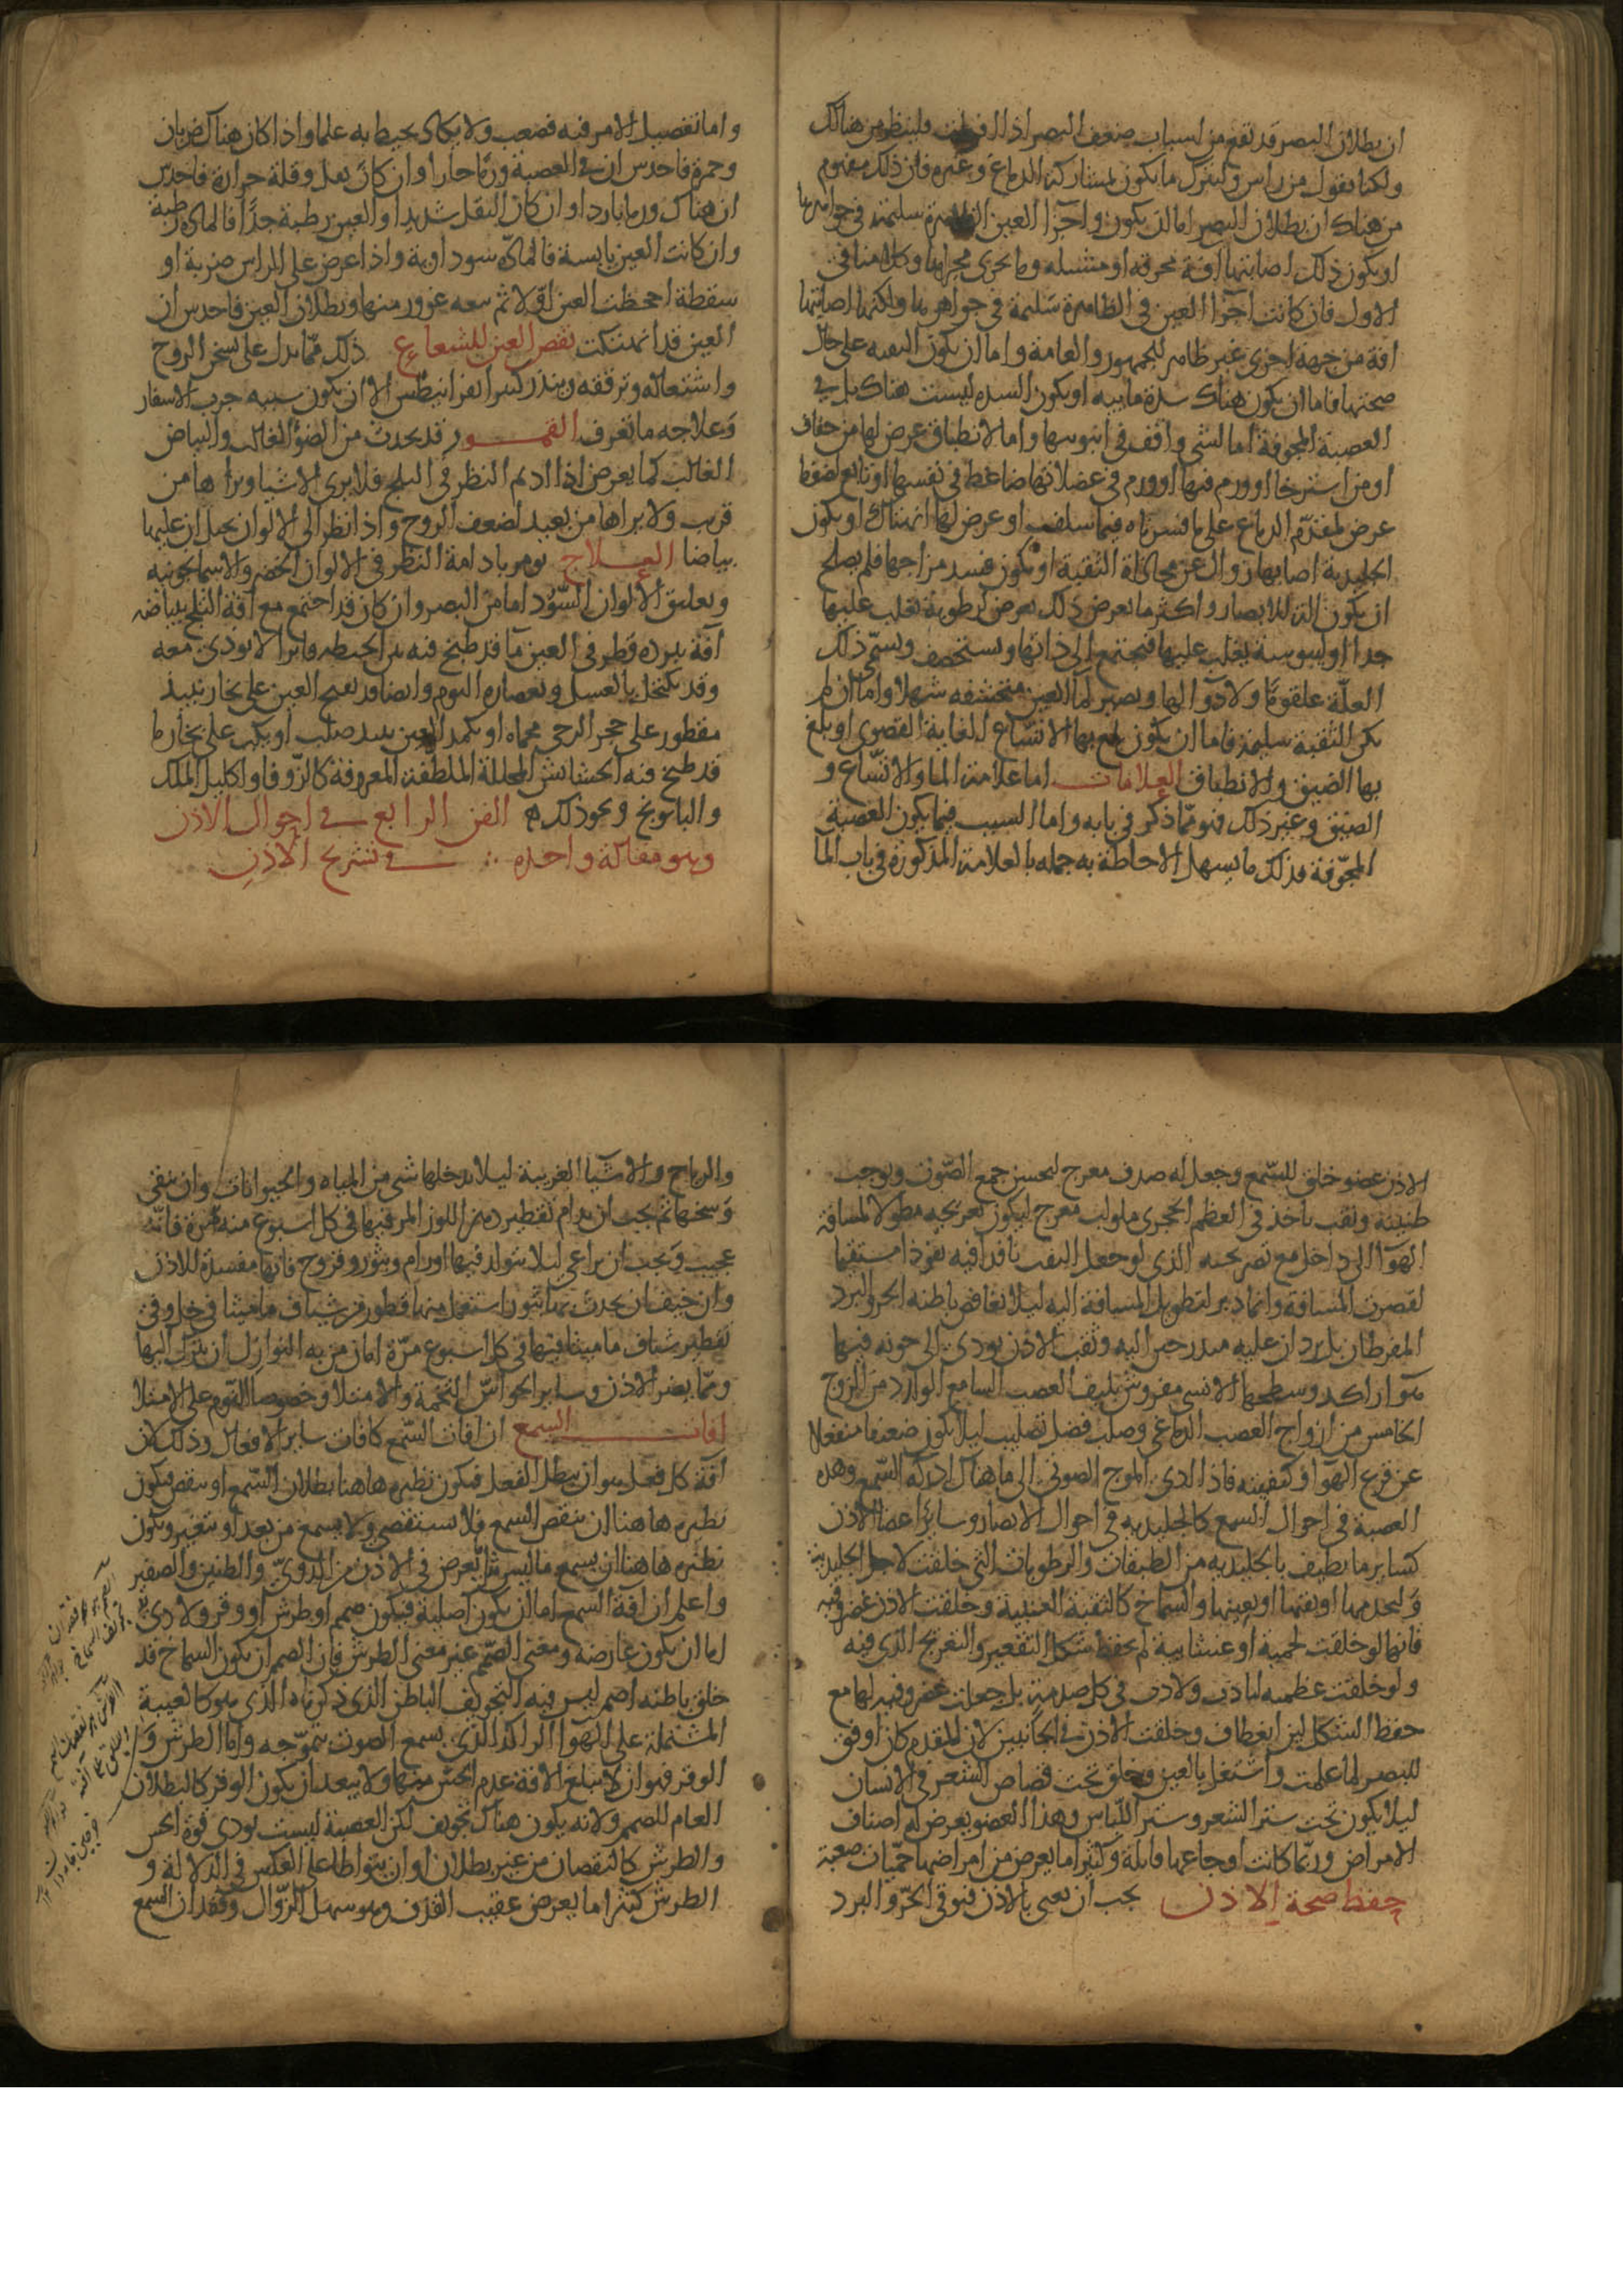 ان بطلان البصر قد يقع من اسباب ضعف البصر اذا افرطت فلينظر من هناك
ولكنا نقول من راس ولنترك ما يكون بمشاركة الدماغ وغيره فان ذلك مفهوم
من هناك ان بطلان البصر اما ان يكون واجزا العين الظاهرة سليمة في جواهرها
او يكون ذلك اصابتها افة محرقه او مسيله وما يجرى مجراها وكلامنا في
الاول فان كانت اجزا العين في الظاهرة سليمة في جواهرها ولكنها اصابتها
افة من جهة اخرى غير ظاهر للجمهور والعامة واما ان يكون الثقبه على حال
صحتها فاما ان يكون هناك سدة ماييه او يكون السده ليست هناك بل في
العصبة المجوفة اما لشى واقف في انبوبها واما لانطباق عرض لها من جفاف
او من استرخا او ورم فيها او ورم في عضلاتها ضاغط في نفسها او تابع لضغط
عرض لمقدم الدماغ على ما فسرناه فيما سلف او عرض لها انهتاك او يكون
الجليدية اصابها زوال عن محاذاة الثقبة او يكون فسد مزاجها فلم يصلح
ان يكون الة للابصار واكثر ما يعرض ذلك يعرض لرطوبة تغلب عليها
جدا او ليبوسة يغلب عليها فتجتمع الى ذاتها وتستخصف ويسمى ذلك
العلة علقوما ولا دوا لها ويصير لها العين منخسفه شهلا واما ان لم
يكن الثقبة سليمة فاما ان يكون بلغ بها الاتساع الغاية القصوى او بلغ
بها الضيق والانطباق العلامات اما علامة الما والاتساع و
الضيق وغير ذلك فهو مما ذكر في بابه واما السبب فيما يكون العصبة
المجوفة فذلك ما يسهل الاحاطة به جمله بالعلامة المذكورة في باب الما
واما تفصيل الامر فيه فصعب ولا يكاد يحيط به علما واذا كان هناك ضربان
وحمرة فاحدس ان في العصبة ورما حارا وان كان ثقل وقلة حرارة فاحدس
ان هناك ورما باردا وان كان الثقل شديدا والعين رطبة جدا فالمادة رطبة
وان كانت العين يابسة فالمادة سوداوية واذا عرض على الراس ضربة او
سقطة اجحظت العين اولا ثم تبعه غوور منها وبطلان العين فاحدس ان
العين قد انهتكت بغض العين للشعاع ذلك مما يدل على تسخن الروح
واشتعاله وترققه وينذر كثيرا بقرانيطس الا ان يكون سببه جرب الاشفار
وعلاجه ما تعرف القمور قد يحدث من الضو الغالب والبياض
الغالب كما يعرض اذا اديم النظر في الثلج فلا يرى الاشيا ويراها من
قريب ولا يراها من بعيد لضعف الروح واذا نظر الى الالوان تخيل ان عليها
بياضا العلاج يومر بادامة النظر في الالوان الخضر والاسمانجونيه
وتعليق الالوان السود امام البصر وان كان قد اجتمع مع افة الثلج ببياضه
آفة ببرده وقطر في العين ما قد طبخ فيه تبن الحنطه فاترا لا يوذى معه
وقد يكتحل بالعسل وبعصاره الثوم وايضا قد يفتح العين على بخار نبيذ
مقطور على حجر الرحى محماه او تكمد العين بنبيذ صلب او يكب على بخار ما
قد طبخ فيه الحشائش المحللة الملطفة المعروفة كالزوفا واكليل الملك
والبابونج ونحو ذلك الفن الرابع في احوال الاذن
وهو مقالة واحده في تشريح الاذن
الاذن عضو خلق للسمع وجعل له صدف معرج ليحسن جمع الصوت ويوجب
طنينه وثقب ياخذ في العظم الحجرى ملولب معرج ليكون تعريجه مطولا لمسافة
الهوآ الى داخل مع قصر ثخنه الذى لو جعل الثقب نافذا فيه نفوذا مستقيما
لقصرت المسافة وانما دبر لتطويل المسافة اليه ليلا يغافص باطنه الحر والبرد
المفرطان بل يردان عليه متدرجين اليه وثقب الاذن يودى الى جوبة فيها
هوآ راكد وسطحها الانسى مفروش بليف العصب السامع الوارد من الزوج
الخامس من ازواج العصب الدماغى وصلب فضل تصليب ليلا يكون ضعيفا منفعلا
عن قرع الهوآ وكيفيته فاذا ادى الموج الصوتى الى ما هناك ادركه السمع وهذه
العصبة في احوال السمع كالجليديه في احوال الابصار وسائر اعضا الاذن
كساير ما يطيف بالجليديه من الطبقات والرطوبات التى خلقت لاجل الجليدية
ولتخدمها او تقيها او تعينها والسماخ كالثقبة العنبية وخلقت الاذن غضروفيه
فانها لو خلقت لحمية او غشايية لم يحفظ شكل التقعير والتعريج الذى فيه
ولو خلقت عظميه لتاذت ولاذت في كل صدمة بل جعلت غضروفيه لها مع
حفظ الشكل لين انعطاف وخلقت الاذن في الجانبين لان المقدم كان اوفق
للبصر لما علمت واشتغل بالعين وخلق تحت قصاص الشعر في الانسان
ليلا يكون تحت ستر الشعر وستر اللباس وهذا العضو يعرض له اصناف
الامراض وربما كانت اوجاعها قاتلة وكثيرا ما يعرض من امراضها حميات صعبة
حفظ صحة الاذن يجب ان يعنى بالاذن فيوقى الحر والبرد
والرياح والاشيا الغريبة ليلا يدخلها شى من المياه والحيوانات وان ينقى
وسخها ثم يجب ان يدام تقطير دهن اللوز المر فيها في كل اسبوع منه مرة فانه
عجيب ويجب ان يراعى ليلا يتولد فيها اورام وبثور وقروح فانها مفسدة للاذن
وان خيف ان يحدث بها بثور استعمل فيها قطور من شياف ماميثا في خل وفي
تقطير شياف ماميثا فيها في كل اسبوع مرة امان من به النوازل ان ينزل اليها
ومما يضر الاذن وساير الحواس التخمة والامتلا وخصوصا النوم على الامتلا
افات السمع ان افات السمع كافات ساير الافعال وذلك لان
افة كل فعل هو ان يبطل الفعل فيكون نظيره هاهنا بطلان السمع او ينقص فيكون
نظيره هاهنا ان ينقص السمع فلا يستقصى ولا يسمع من بعد او يتغير ويكون
نظيره هاهنا ان يسمع ما ليس مثل ما يعرض في الاذن من الدوى والطنين والصفير
واعلم ان افة السمع اما ان يكون اصلية فيكون صمم او طرش او وقر ولادى
اما ان يكون عارضه ومعنى الصمم غير معنى الطرش فان الصمم ان يكون السماخ قد
خلق باطنه اصم ليس فيه التجويف الباطن الذى ذكرناه الذى هو كالعيبة
المشتملة على الهوآ الراكد الذى يسمع الصوت بتموجه واما الطرش و
الوقر فهو ان لا يبلغ الافة عدم الحس منها ولا يبعد ان يكون الوقر كالبطلان
العام للصمم ولانه يكون هناك تجويف لكن العصبة ليست يودى قوة الحس
والطرش كالنقصان من غير بطلان او ان يتواطا على العكس في الدلالة و
الطرش كثيرا ما يعرض عقيب القذف وهو سهل الزوال وفقدان السمع